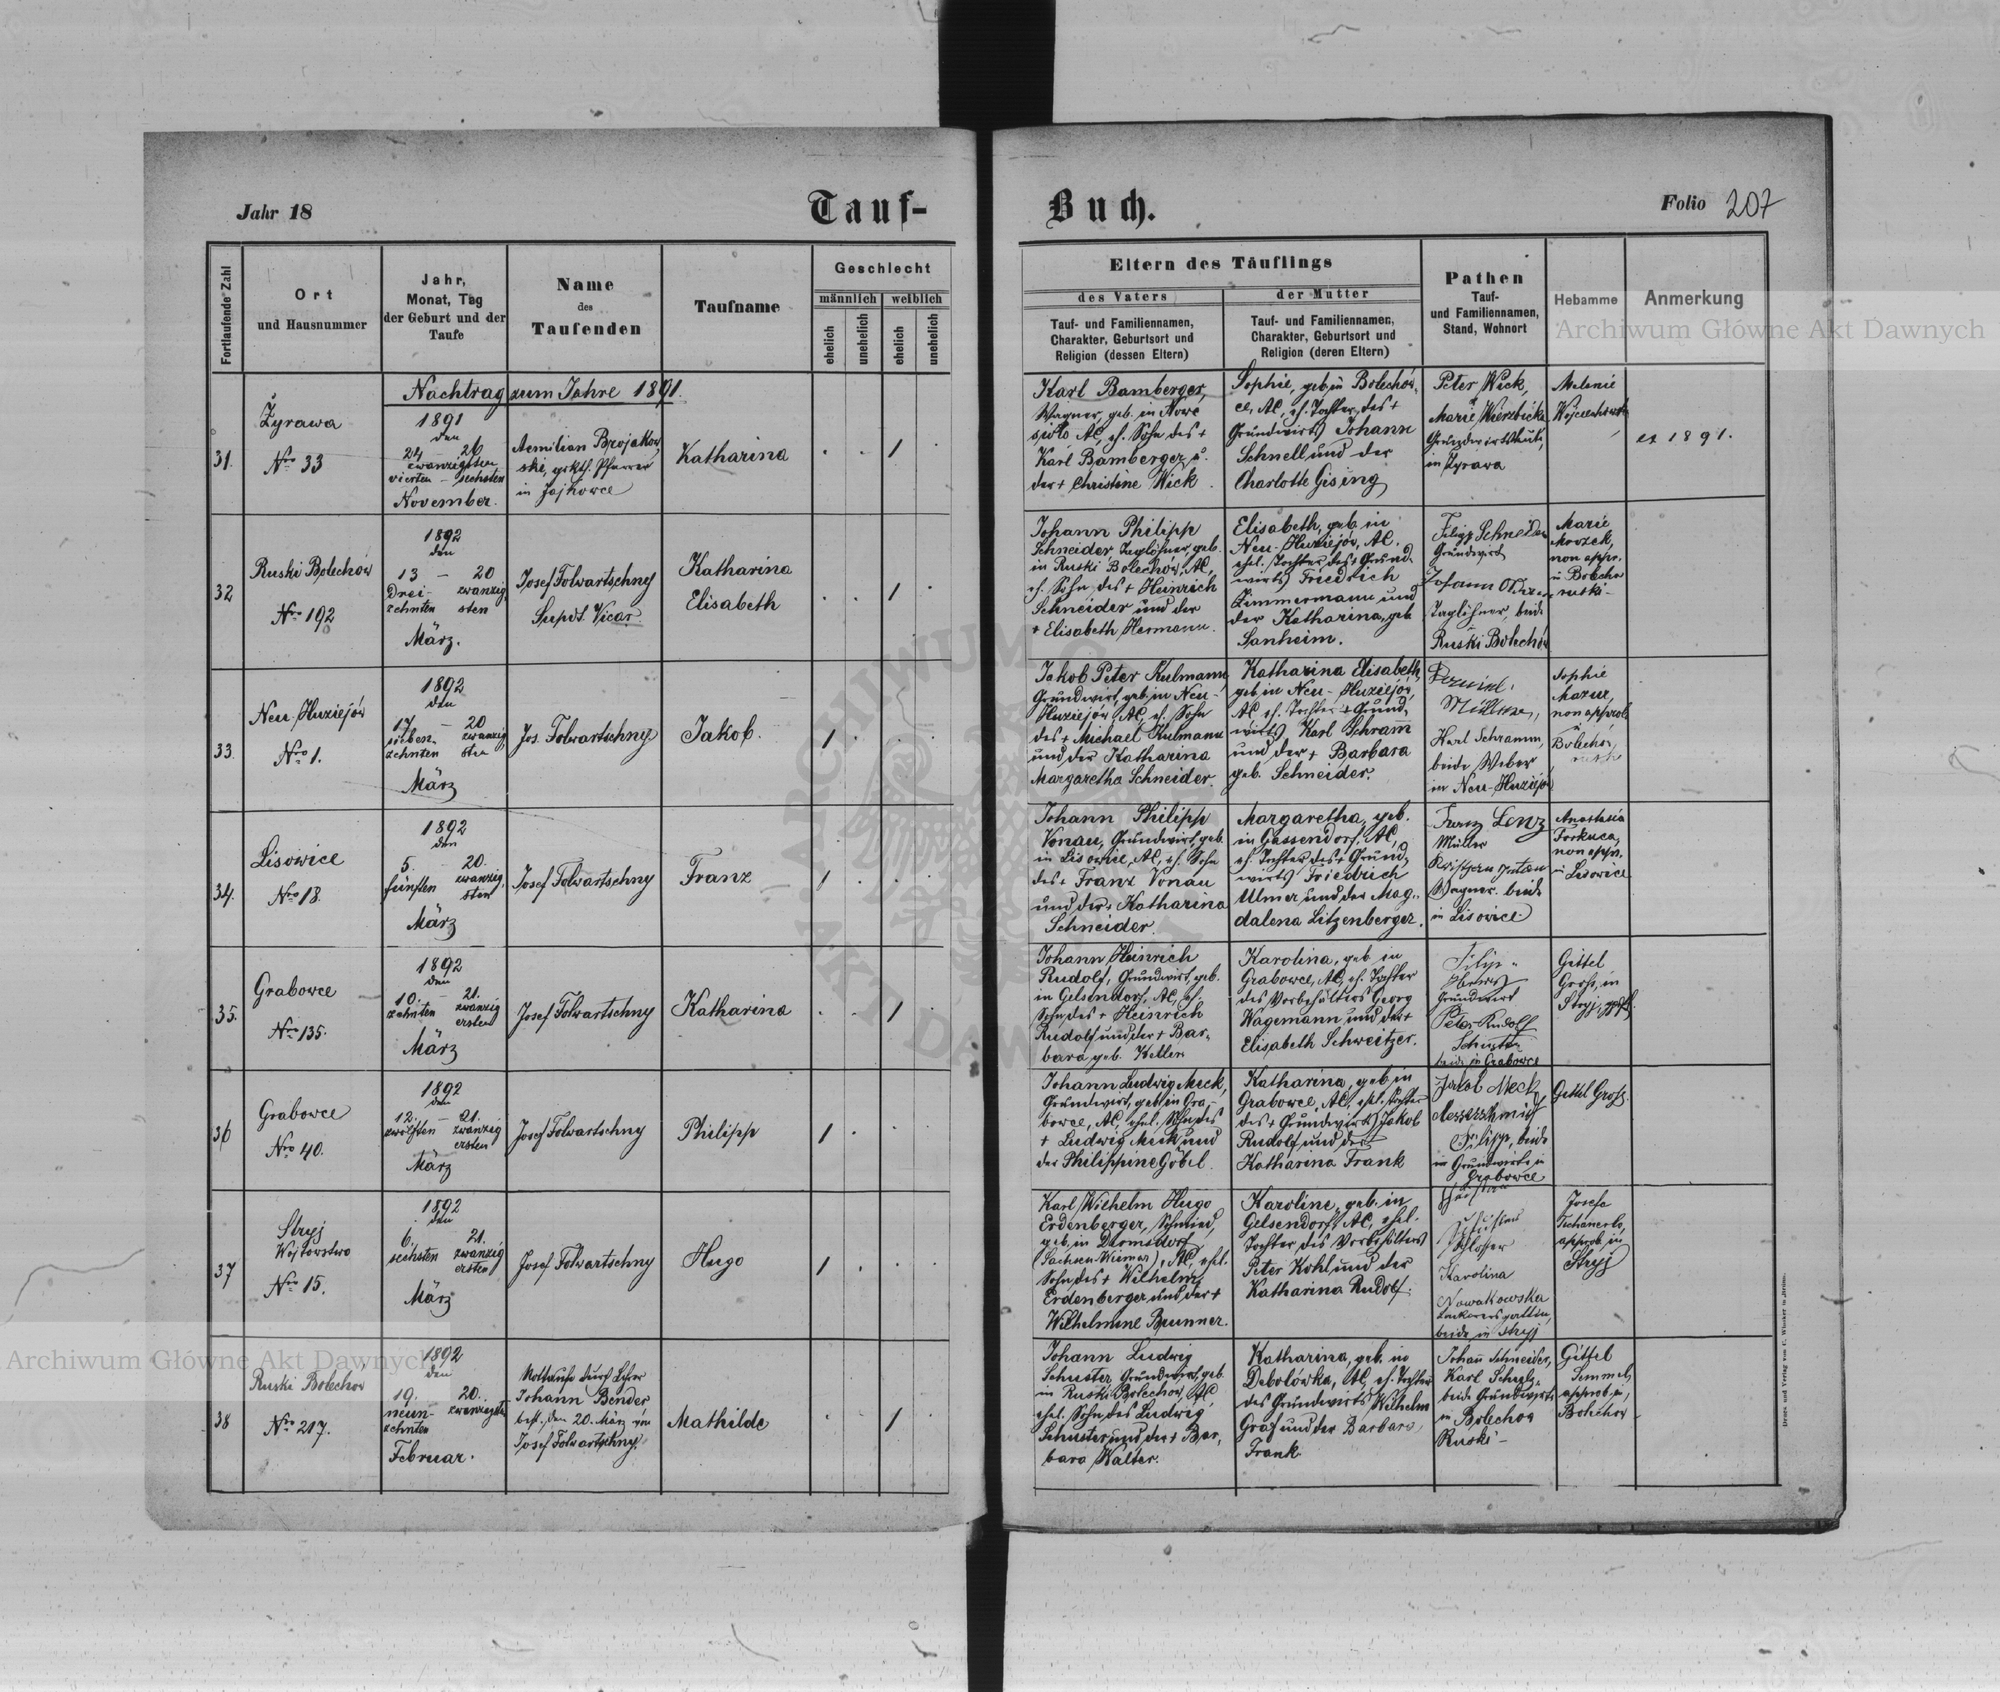 Jahr 18
Tauf-
Buch.
Folio 207
Fortlaufende Zahl
Ort
und Hausnummer
Jahr,
Monat, Tag
der Geburt und der
Taufe
Name
des
Taufenden
Taufname
Geschlecht
männlich
weiblich
ehelich
unehelich
ehelich
unehelich
Eltern des Täuflings
des Vaters
der Mutter
Tauf- und Familiennamen,
Charakter, Geburtsort und
Religion (dessen Eltern)
Tauf- und Familiennamen,
Charakter, Geburtsort und
Religion (deren Eltern)
Pathen
Tauf-
und Familiennamen,
Stand, Wohnort
Hebamme
Anmerkung
Nachtrag zum Jahre 1891.
31.
Żyrawa
Nro 33
1891
den
24 – 26
zwanzigsten
vierten – sechsten
November.
Aemilian
ski, Pfarrer
in Jajkowce
Katharina
1
Karl Bamberger,
Wagner, geb. in Nowe
sioło AC, eh. Sohn des +
Karl Bamberger u.
der + Christine Wick
Sophie, geb. in Bolechów,
AC, eh. Tochter des +
Grundwirts Johann
Schnell und der
Charlotte Gising
Peter Wick,
Marie Wierzbicka
Grundwirtsleute,
in Zyrawa
Melanie
1891.
32
Ruski Bolechów
Nro 192
1892
den
13 – 20
Drei- zwanzig
zehnten sten
März.
Josef Folwartschny
Supdt. Vicar
Katharina
Elisabeth
1
Johann Philipp
Schneider Taglöhner, geb.
in Ruski Bolechów, AC,
eh. Sohn des + Heinrich
Schneider und der
+ Elisabeth Hermann.
Elisabeth, geb. in
Neu-Huziejów, AC.
ehel. Tochter des + Grund
wirts Friedrich
Zimmermann und
der Katharina, geb
Sanheim.
Schneider
Grundwirt
Johann
Taglöhner, beide
Ruski Bolechów
Marie
Mrozek,
non appr.
in Bolecho
ruski –
33
Neu-Huziejów
Nro 1.
1892
den
17 – 20
sieben- zwanzig
zehnten sten
März
Jos. Folwartschny
Jakob.
1
Jakob Peter Kulmann,
Grundwirt, geb. in Neu-
Huziejów, AC, eh. Sohn
des + Michael Kulmann
und der Katharina
Margaretha Schneider.
Katharina Elisabeth,
geb. in Neu-Huziejów,
AC eh. Tochter + Grund,
wirts Karl Schram̄
und der + Barbara
geb. Schneider.
Karl Schramm,
beide Weber
in Neu-Huziejów
Sophie
Mazur,
non approb.
Bolechów
34.
Lisowice
Nro 18.
1892
den
5. 20.
fünften zwanzig,
sten
März
Josef Folwartschny
Franz
1
Johann Philipp
Vonau, Grundwirt, geb.
in Lisowice, AC, eh. Sohn
des + Franz Vonau
und der + Katharina
Schneider.
Margaretha, geb.
in Gassendorf, AC,
eh. Tochter des + Grund,
wirts Friedrich
Ulmer und der Mag-
dalena Litzenberger.
Franz Lenz
Müller
Wagner beide
in Lisowice
Anastasia
non appr.
in Lisowice
35.
Grabowce
Nro 135.
1892
den
10. – 21.
zehnten zwanzig
ersten
März
Josef Folwartschny
Katharina
1
Johann Heinrich
Rudolf, Grundwirt, geb.
in Gelsendorf, AC, eh.
Sohn des + Heinrich
Rudolf und der + Bar-
bara geb. Keller
Karolina, geb. in
Grabowce, AC, eh. Tochter
des Vorbehälters Georg
Wagemann und der +
Elisabeth Schweitzer.
Grundwirt
Peter Rudolf
Schuster
beide in Grabowce
Gittel
Gross, in
Stryj,
36
Grabowce
Nro 40.
1892
den
12. – 21.
zwölften zwanzig
ersten
März
Josef Folwartschny
Philipp
1
Johann Ludwig Meck,
Grundwirt, geb. in Gra-
bowce, AC, ehel. Sohn des
+ Ludwig Meck und
der Philippine Göbel.
Katharina, geb. in
Grabowce, AC, ehel. Tochter
des + Grundwirts Jakob
Rudolf und der +
Katharina Frank
Jakob Meck
Filipp, beide
Grundwirte in
Grabowce
Gittel Gross.
37
Stryj
Wojtowstwo
Nro 15.
1892
den
6. 21.
sechsten zwanzig
ersten
März
Josef Folwartschny
Hugo
1
Karl Wilhelm Hugo
Erdenberger, Schmied,
geb. in
(Sachsen Weimar), AC, ehel.
Sohn des + Wilhelm
Erdenberger und der +
Wilhelmine Brunner.
Karoline, geb. in
Gelsendorf, AC, ehel.
Tochter des Vorbehälters
Peter Kohl und der
Katharina Rudolf.
Schlosser
Karolina
Nowakowska
beide in Stryj
Josefa
approb. in
Stryj
38
Ruski Bolechow
Nro 217.
1892
den
19. 20.
neun- zwanzigsten
zehnten
Februar.
Nottaufe durch Lehrer
Johann Bender
best. den 20. März von
Josef Folwartschny
Mathilde
1
Johann Ludwig
Schuster Grundwirt, geb.
in Ruski Bolechow, AC,
ehel. Sohn des Ludwig
Schuster und der + Bar,
bara Walter.
Katharina, geb. in
Debolówka, AC, eh. Tochter
des Grundwirts Wilhelm
Graf und der Barbara
Frank.
Johan̄ Schneider,
Karl
beide Grundwirte
in Bolechow
Ruski –
Gittel
approb. in
Bolechow
Archiwum Główne Akt Dawnych
Archiwum Główne Akt Dawnych